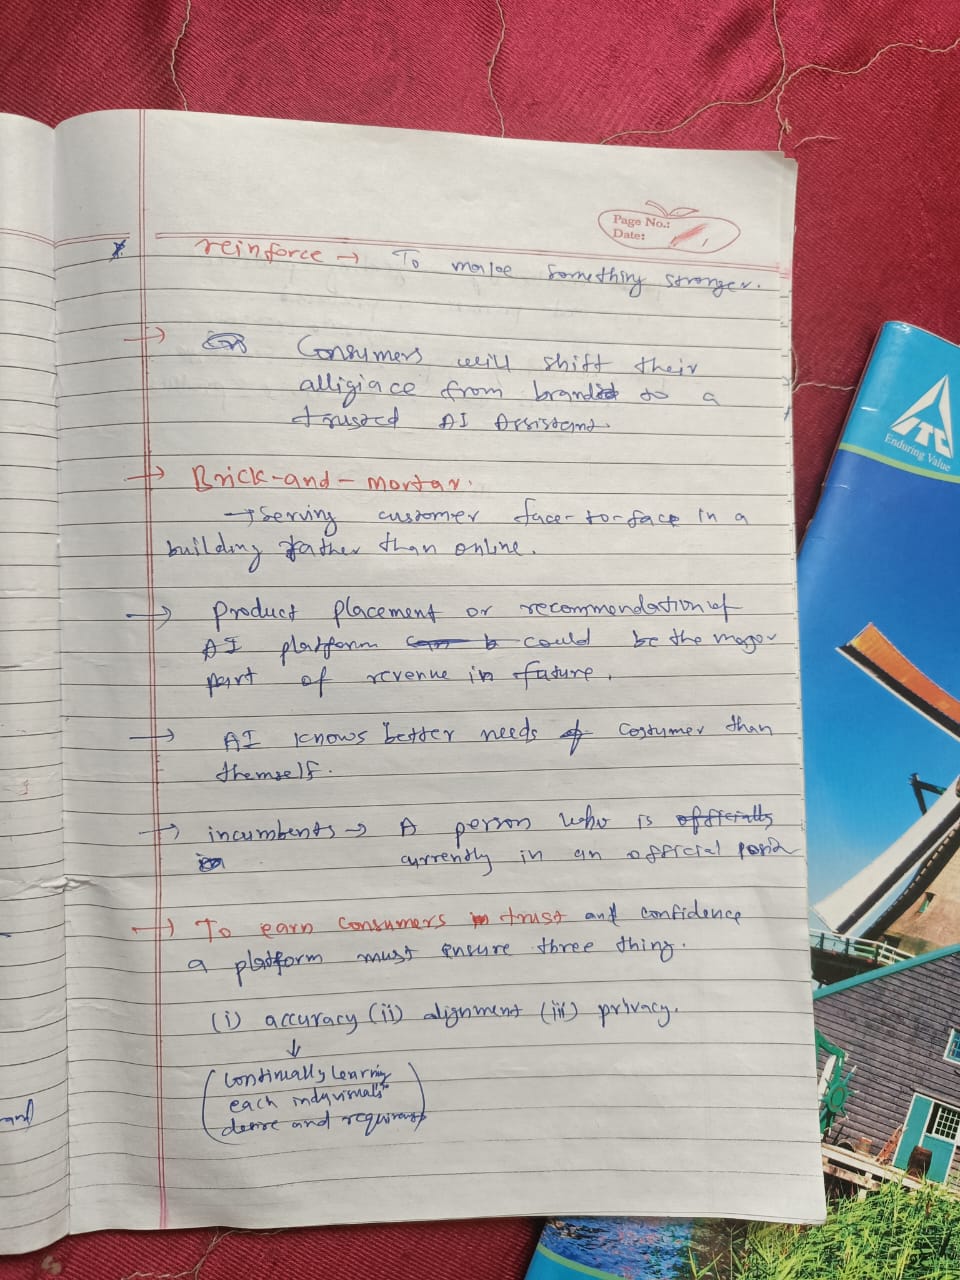 Page No.:
Date:
reinforce → To make something stronger.
→ Consumers will shift their
alligiace from brand to a
trusted AI Assistant.
→ Brick-and-mortar.
→ Serving customer face-to-face in a
building rather than online.
→ product placement or recommendation of
AI platform could be the major
part of revenue in future.
→ AI knows better needs of costumer than
themself.
→ incumbents → A person who is officially
currently in an official
→ To earn consumers trust and confidence
a platform must ensure three thing.
(i) accuracy (ii) alignment (iii) privacy.
↓
(continually learning
each indivisuals
desire and
and
ITC
Enduring Value